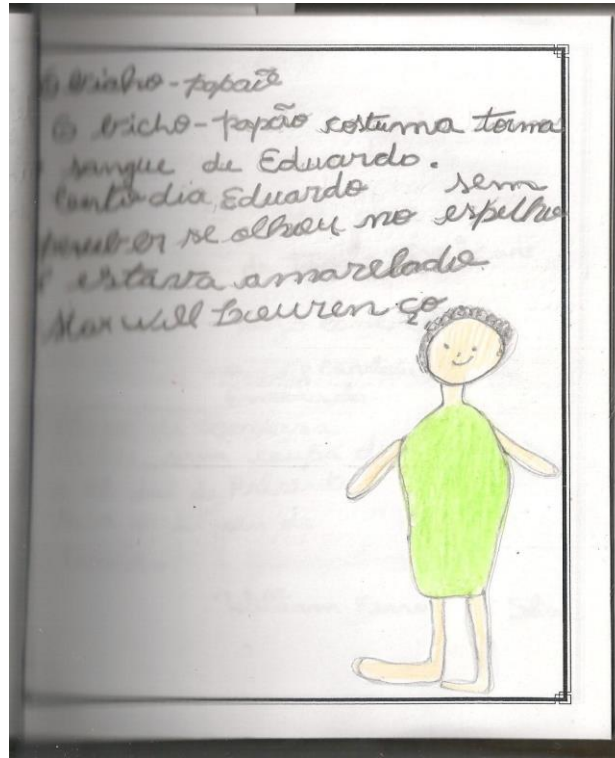 O bicho-papão
O bicho-papão costuma toma
sangue de Eduardo.
Certo dia, Eduardo sem
perceber se olhou no espelho
e estava amarelado.
Maxwill Lourenço